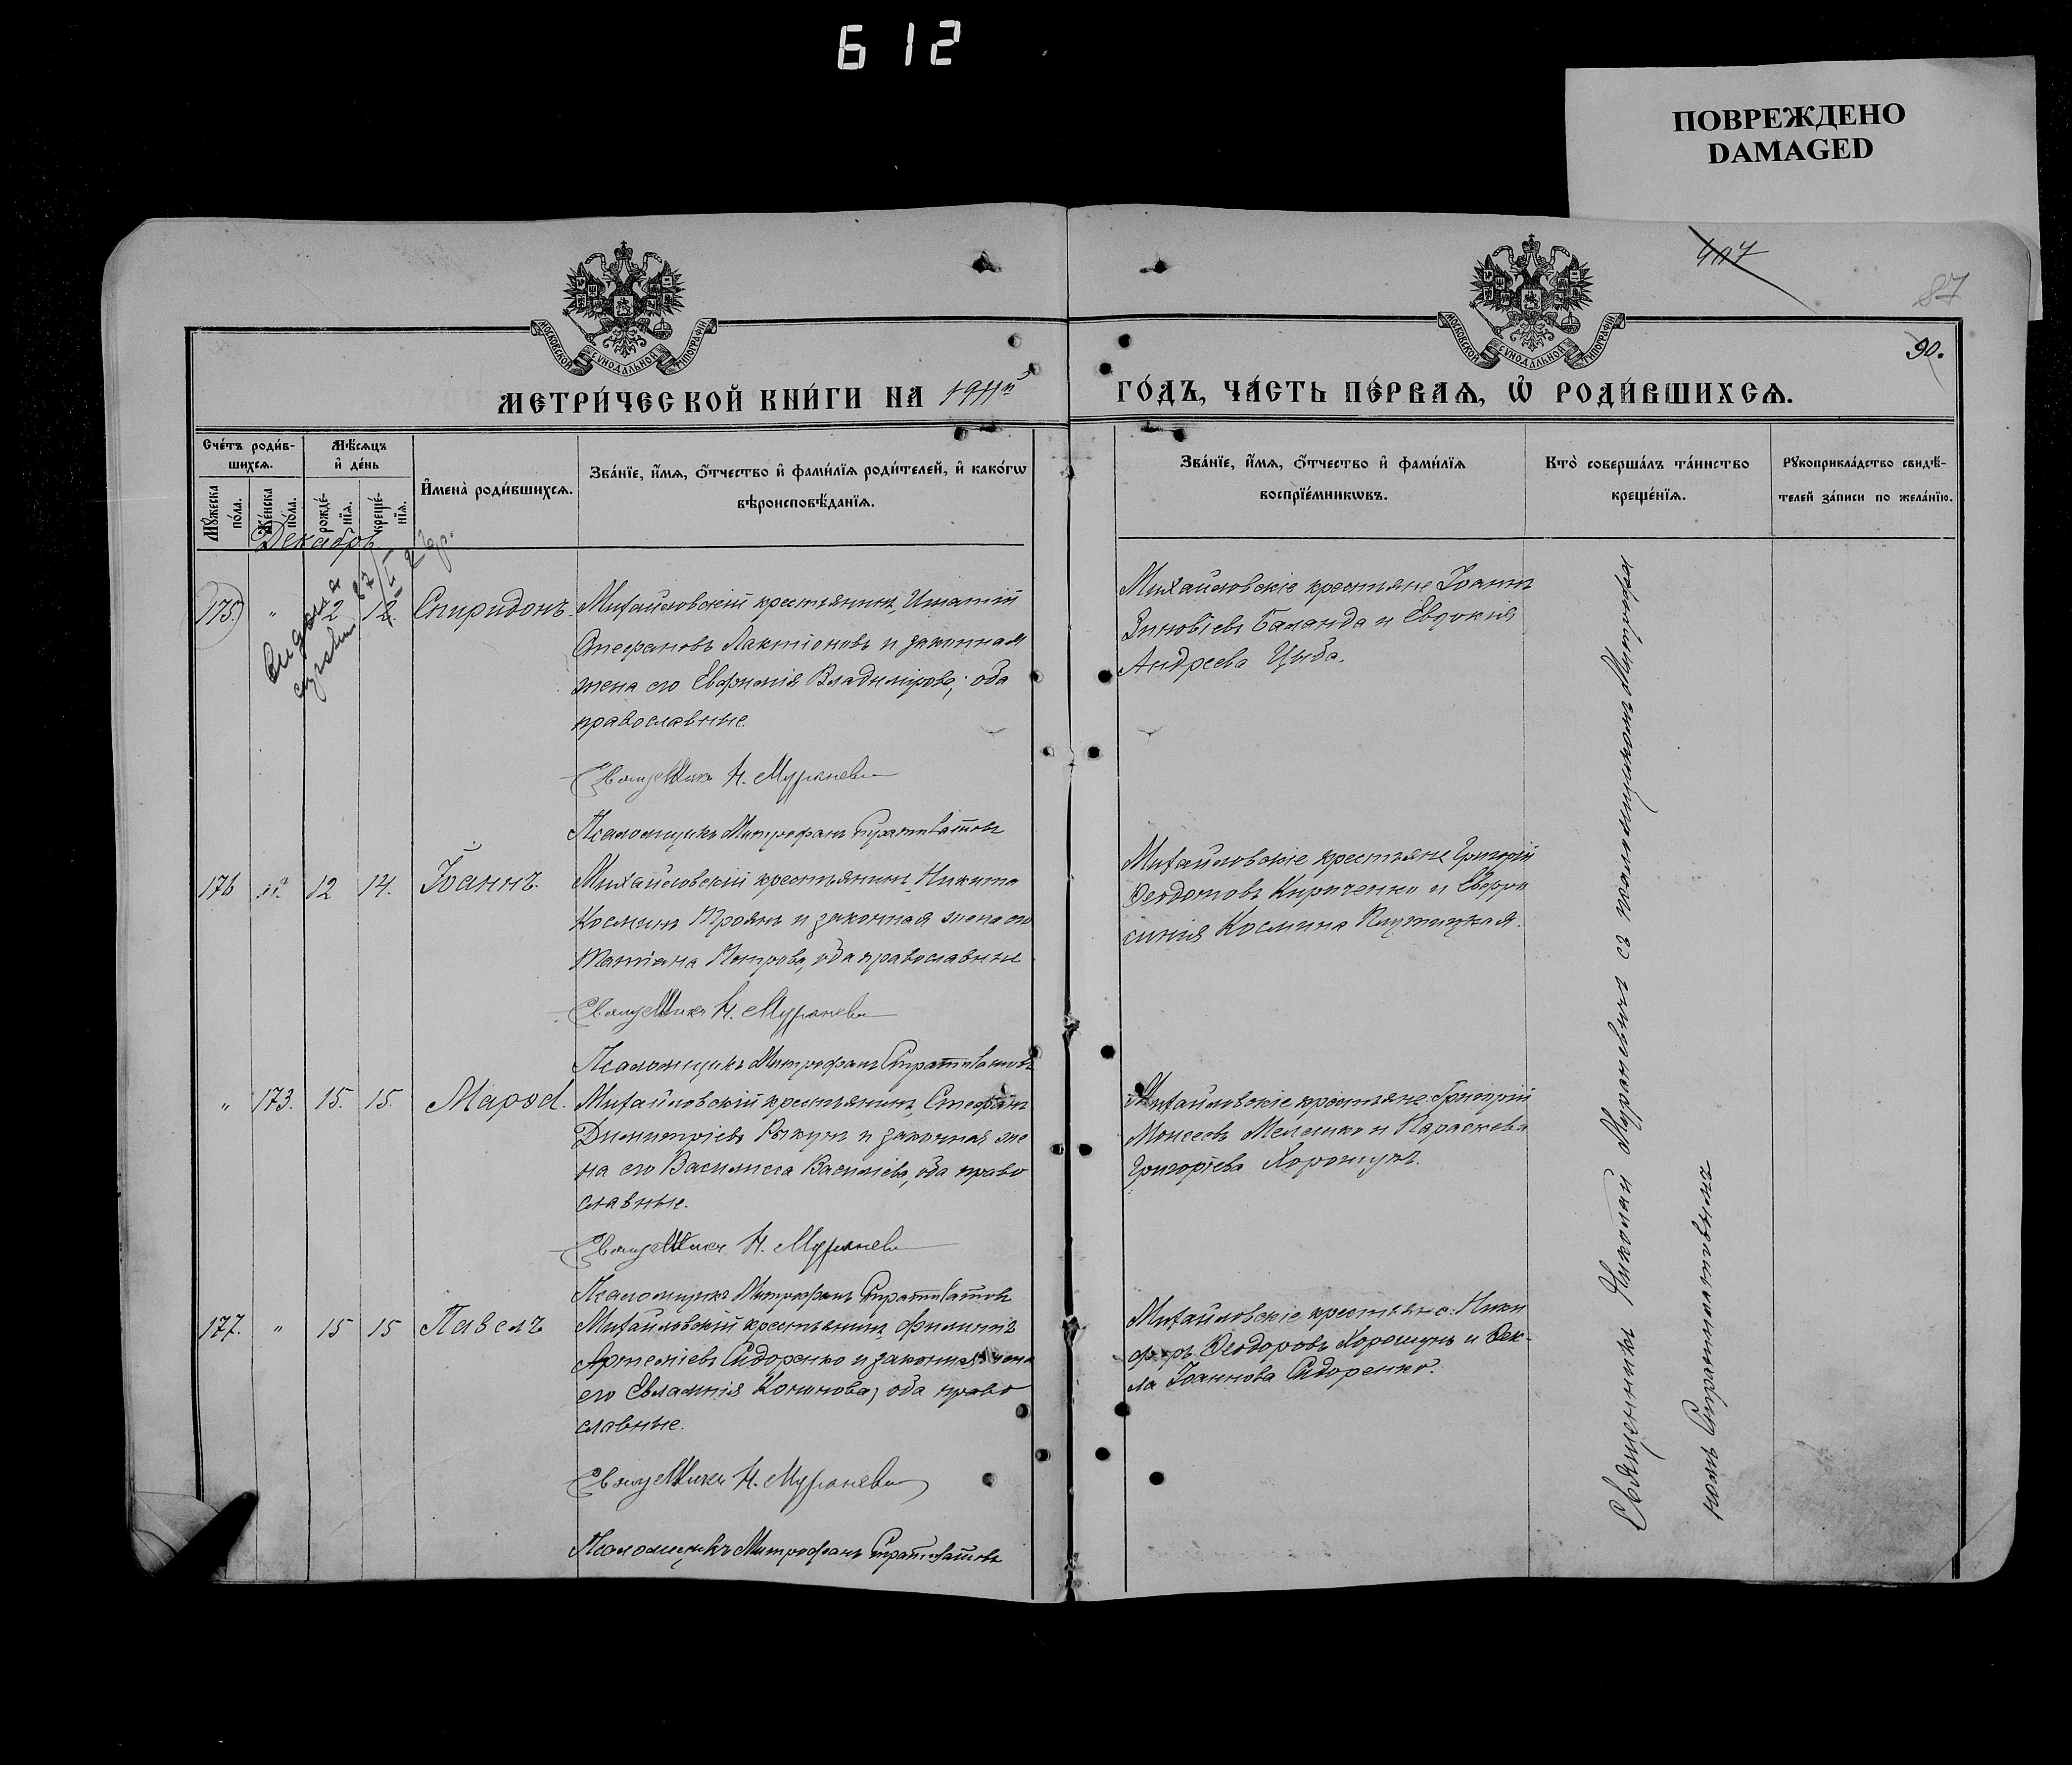 612
ПОВРЕЖДЕНО
DAMAGED
407
87
90.
МОСКОВСКОЙ СѴНОДАЛЬНОЙ ТИПОГРАФІИ
МОСКОВСКОЙ СѴНОДАЛЬНОЙ ТИПОГРАФІИ
МЕТРИ́ЧЕСКОЙ КНИ́ГИ НА 1911й
ГО́ДЪ, ЧА́СТЬ ПЕ́РВАѦ, Ѽ РОДИ́ВШИХСѦ.
Сче́тъ роди́в-
шихсѧ.
Мѣ́сѧцъ
и҆ де́нь
Мꙋ́жеска по́ла.
Же́нска по́ла.
рожде́-нїѧ.
креще́-нїѧ.
И҆мена̀ роди́вшихсѧ.
Зва́нїе, и҆́мѧ, ѻ҆́тчество и҆ фами́лїѧ роди́телей, и҆ како́гѡ
вѣроисповѣ́данїѧ.
Зва́нїе, и҆́мѧ, ѻ҆́тчество и҆ фами́лїѧ
воспрїе́мникѡвъ.
Кто̀ соверша́лъ та́инство
креще́нїѧ.
Рꙋкоприкла́дство свидѣ́-
телей за́писи по жела́нїю.
Декабрь
175. " 12 12. Спиридонъ.
Михайловскій крестьянинъ, Игнатій
Стефановъ Лактіоновъ и законная
жена его Евфимія Владимірова; оба
православные.
Священникъ Н. Мураневъ
Псаломщикъ Митрофанъ Стратилатовъ
Михайловскіе крестьяне Іоаннъ
Зиновіевъ Баланда и Евдокія
Андреева Цыба.
176 " 12 14. Іоаннъ.
Михайловскій крестьянинъ Никита
Косминъ Троянъ и законная жена его
Татіана Петрова, оба православные
Священникъ Н. Мураневъ
Псаломщикъ Митрофанъ Стратилатовъ
Михайловскіе крестьяне Григорій
Ѳеодотовъ Кириченко и Евфро
синія Космина
" 173. 15. 15. Марѳа.
Михайловскій крестьянинъ Стефанъ
Димитріевъ и законная же
на его Василисса Василіева, оба право
славные.
Священникъ Н. Мураневъ
Псаломщикъ Митрофанъ Стратилатовъ
Михайловскіе крестьяне: Григорій
Моисеевъ Мелешко и Параскева
Григоріева Хорошунъ.
177. " 15 15 Павелъ
Михайловскій крестьянинъ Филиппъ
Артеміевъ Сидоренко и законная жена
его Евлампія Кононова; оба право
славные.
Священникъ Н. Мураневъ
Псаломщикъ Митрофанъ Стратилатовъ
Михайловскіе крестьяне: Ники
форъ Ѳеодоровъ Хорошунъ и Ѳек-
ла Іоаннова Сидоренко.
Священникъ Николай Мураневичъ съ псаломщикомъ Митрофа
номъ Стратилатовымъ